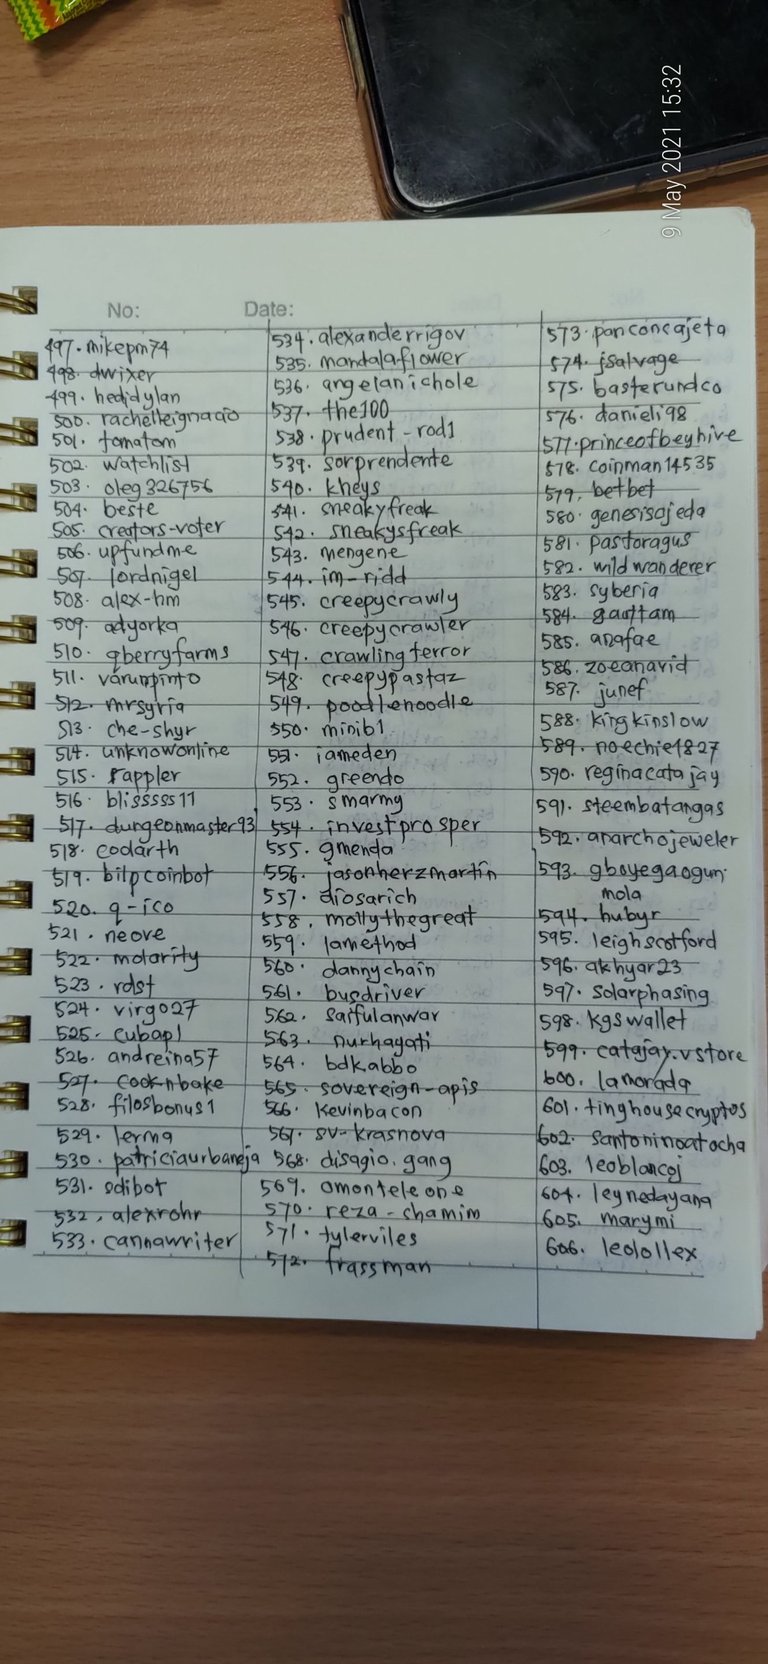 9 May 2021 15:32
No: Date:
497. mikepm74
498. dwixer
499. hedidylan
500. rachelleignacio
501. tomatom
502. watchlist
503. oleg326756
504. beste
505. creators-voter
506. upfundme
507. lordnigel
508. alex-hm
509. adyorka
510. qberryfarms
511. varunpinto
512. mrsyria
513. che-shyr
514. unknowonline
515. rappler
516. blisssss11
517. dungeonmaster93
518. codarth
519. bilpcoinbot
520. q-ico
521. neove
522. molarity
523. rdst
524. virgo27
525. cubapl
526. andreina57
527. cook-n-bake
528. filosbonus1
529. lerma
530. patriciaurbaneja
531. sdibot
532. alexrohr
533. cannawriter
534. alexanderrigov
535. mandalaflower
536. angelanichole
537. the100
538. prudent-rod1
539. sorprendente
540. kheys
541. sneakyfreak
542. sneakysfreak
543. mengene
544. im-ridd
545. creepycrawly
546. creepycrawler
547. crawlingterror
548. creepypastaz
549. poodlenoodle
550. minib1
551. iameden
552. greendo
553. smarmy
554. investprosper
555. gmenda
556. jasonherzmartin
557. diosarich
558. mollythegreat
559. lamethod
560. dannychain
561. busdriver
562. saifulanwar
563. nurhayati
564. bdkabbo
565. sovereign-apis
566. kevinbacon
567. sv-krasnova
568. disagio.gang
569. omonteleone
570. reza-shamim
571. tylerviles
572. frassman
573. panconcajeta
574. jsalvage
575. basterundco
576. danieli98
577. princeofbeyhive
578. coinman14535
579. betbet
580. genesisojeda
581. pastoragus
582. wildwanderer
583. syberia
584. gauttam
585. anafae
586. zoeanavid
587. junef
588. kingkinslow
589. noechie1827
590. reginacatajay
591. steembatangas
592. anarchojeweler
593. gboyegaogun.
mola
594. hubyr
595. leighscotford
596. akhyar23
597. solarphasing
598. kgswallet
599. catajay.vstore
600. lamorada
601. tinghousecryptos
602. santoninoatocha
603. leoblancoj
604. leynedayana
605. marymi
606. leolollex